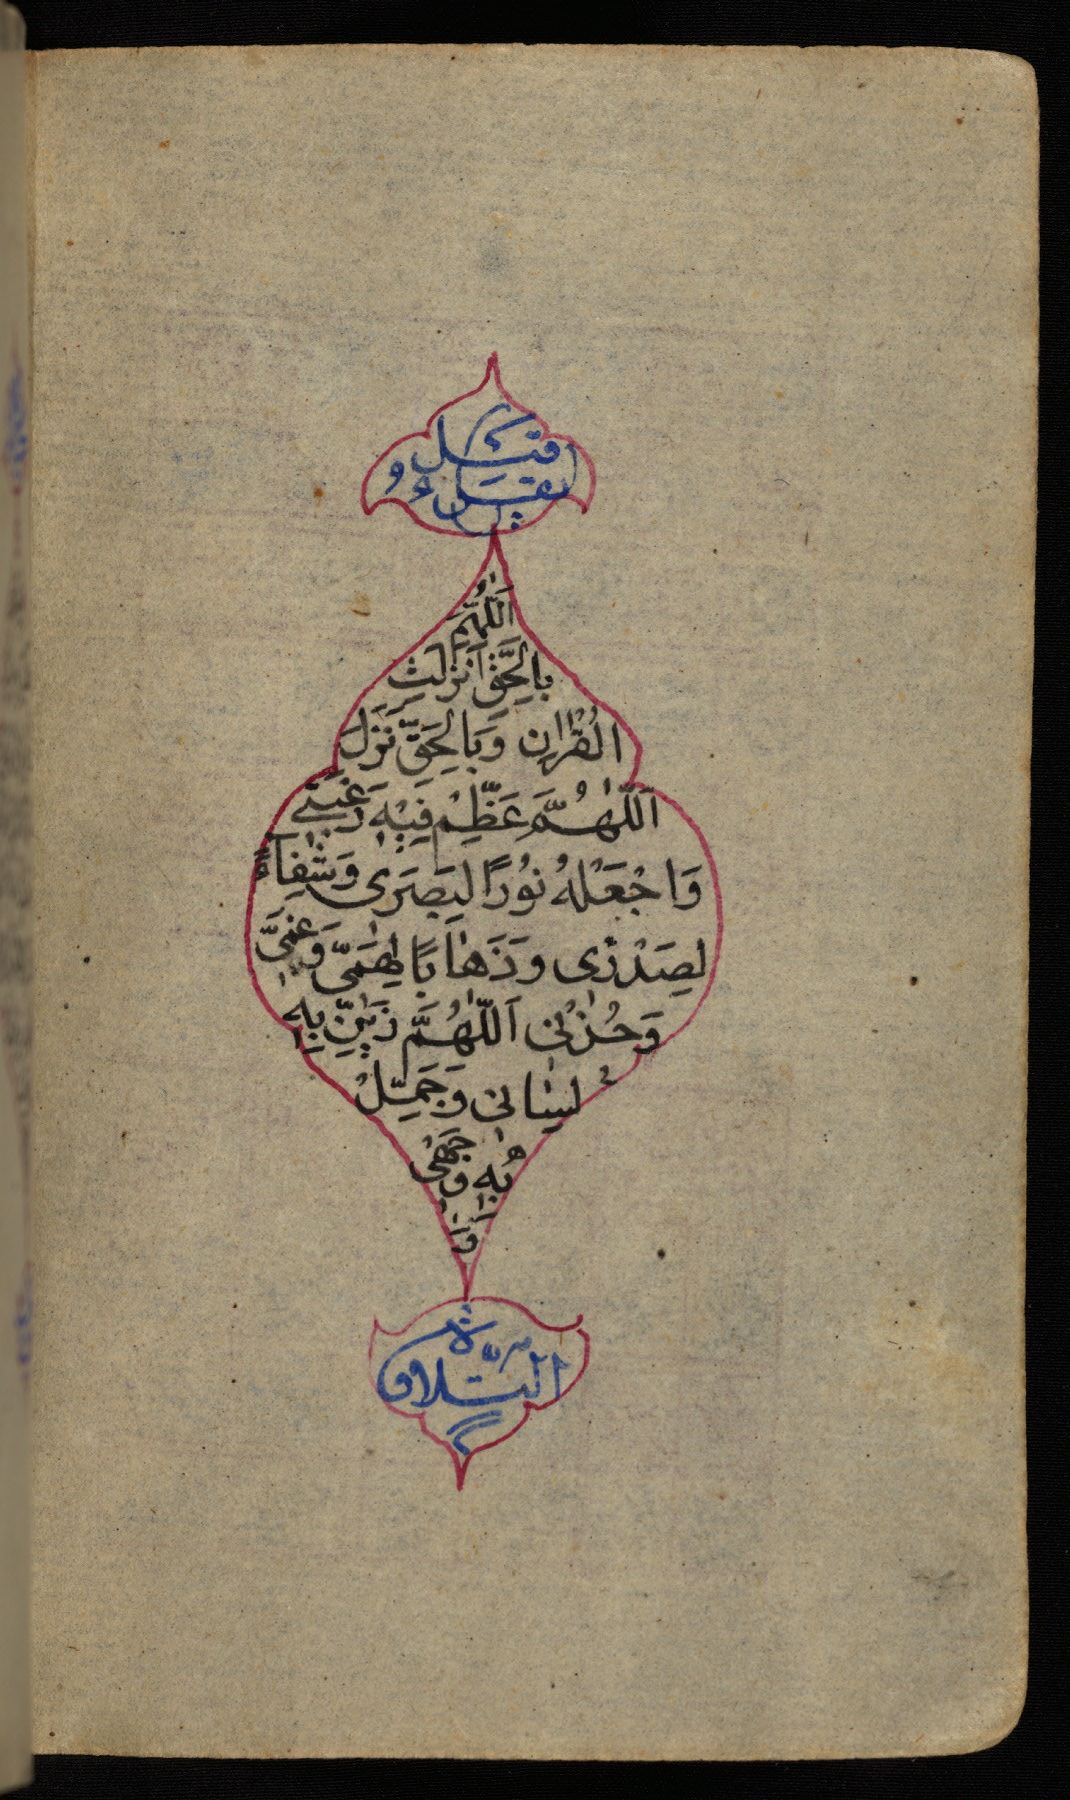 يقرء قبل
اَللّٰهُمَّ
بِالحَقِّ اَنزَلتَ
القُرْاٰنَ وَبِالحَقِّ نَزَلَ
اَللّٰهُمَّ عَظِّمْ فِيْهِ رَغْبَتِي
وَاجْعَلْهُ نُوْرًا لِبَصَرِى وَشِفَآءً
لِصَدْرِى وَذَهَابًا لِهَمِّى وَغَمِّى
وَحُزْنِى اَللّٰهُمَّ زَيِّنْ بِهٖ
لِسَانِى وَجَمِّلْ
بِهٖ وَجْهِى
وَ
التلاوة